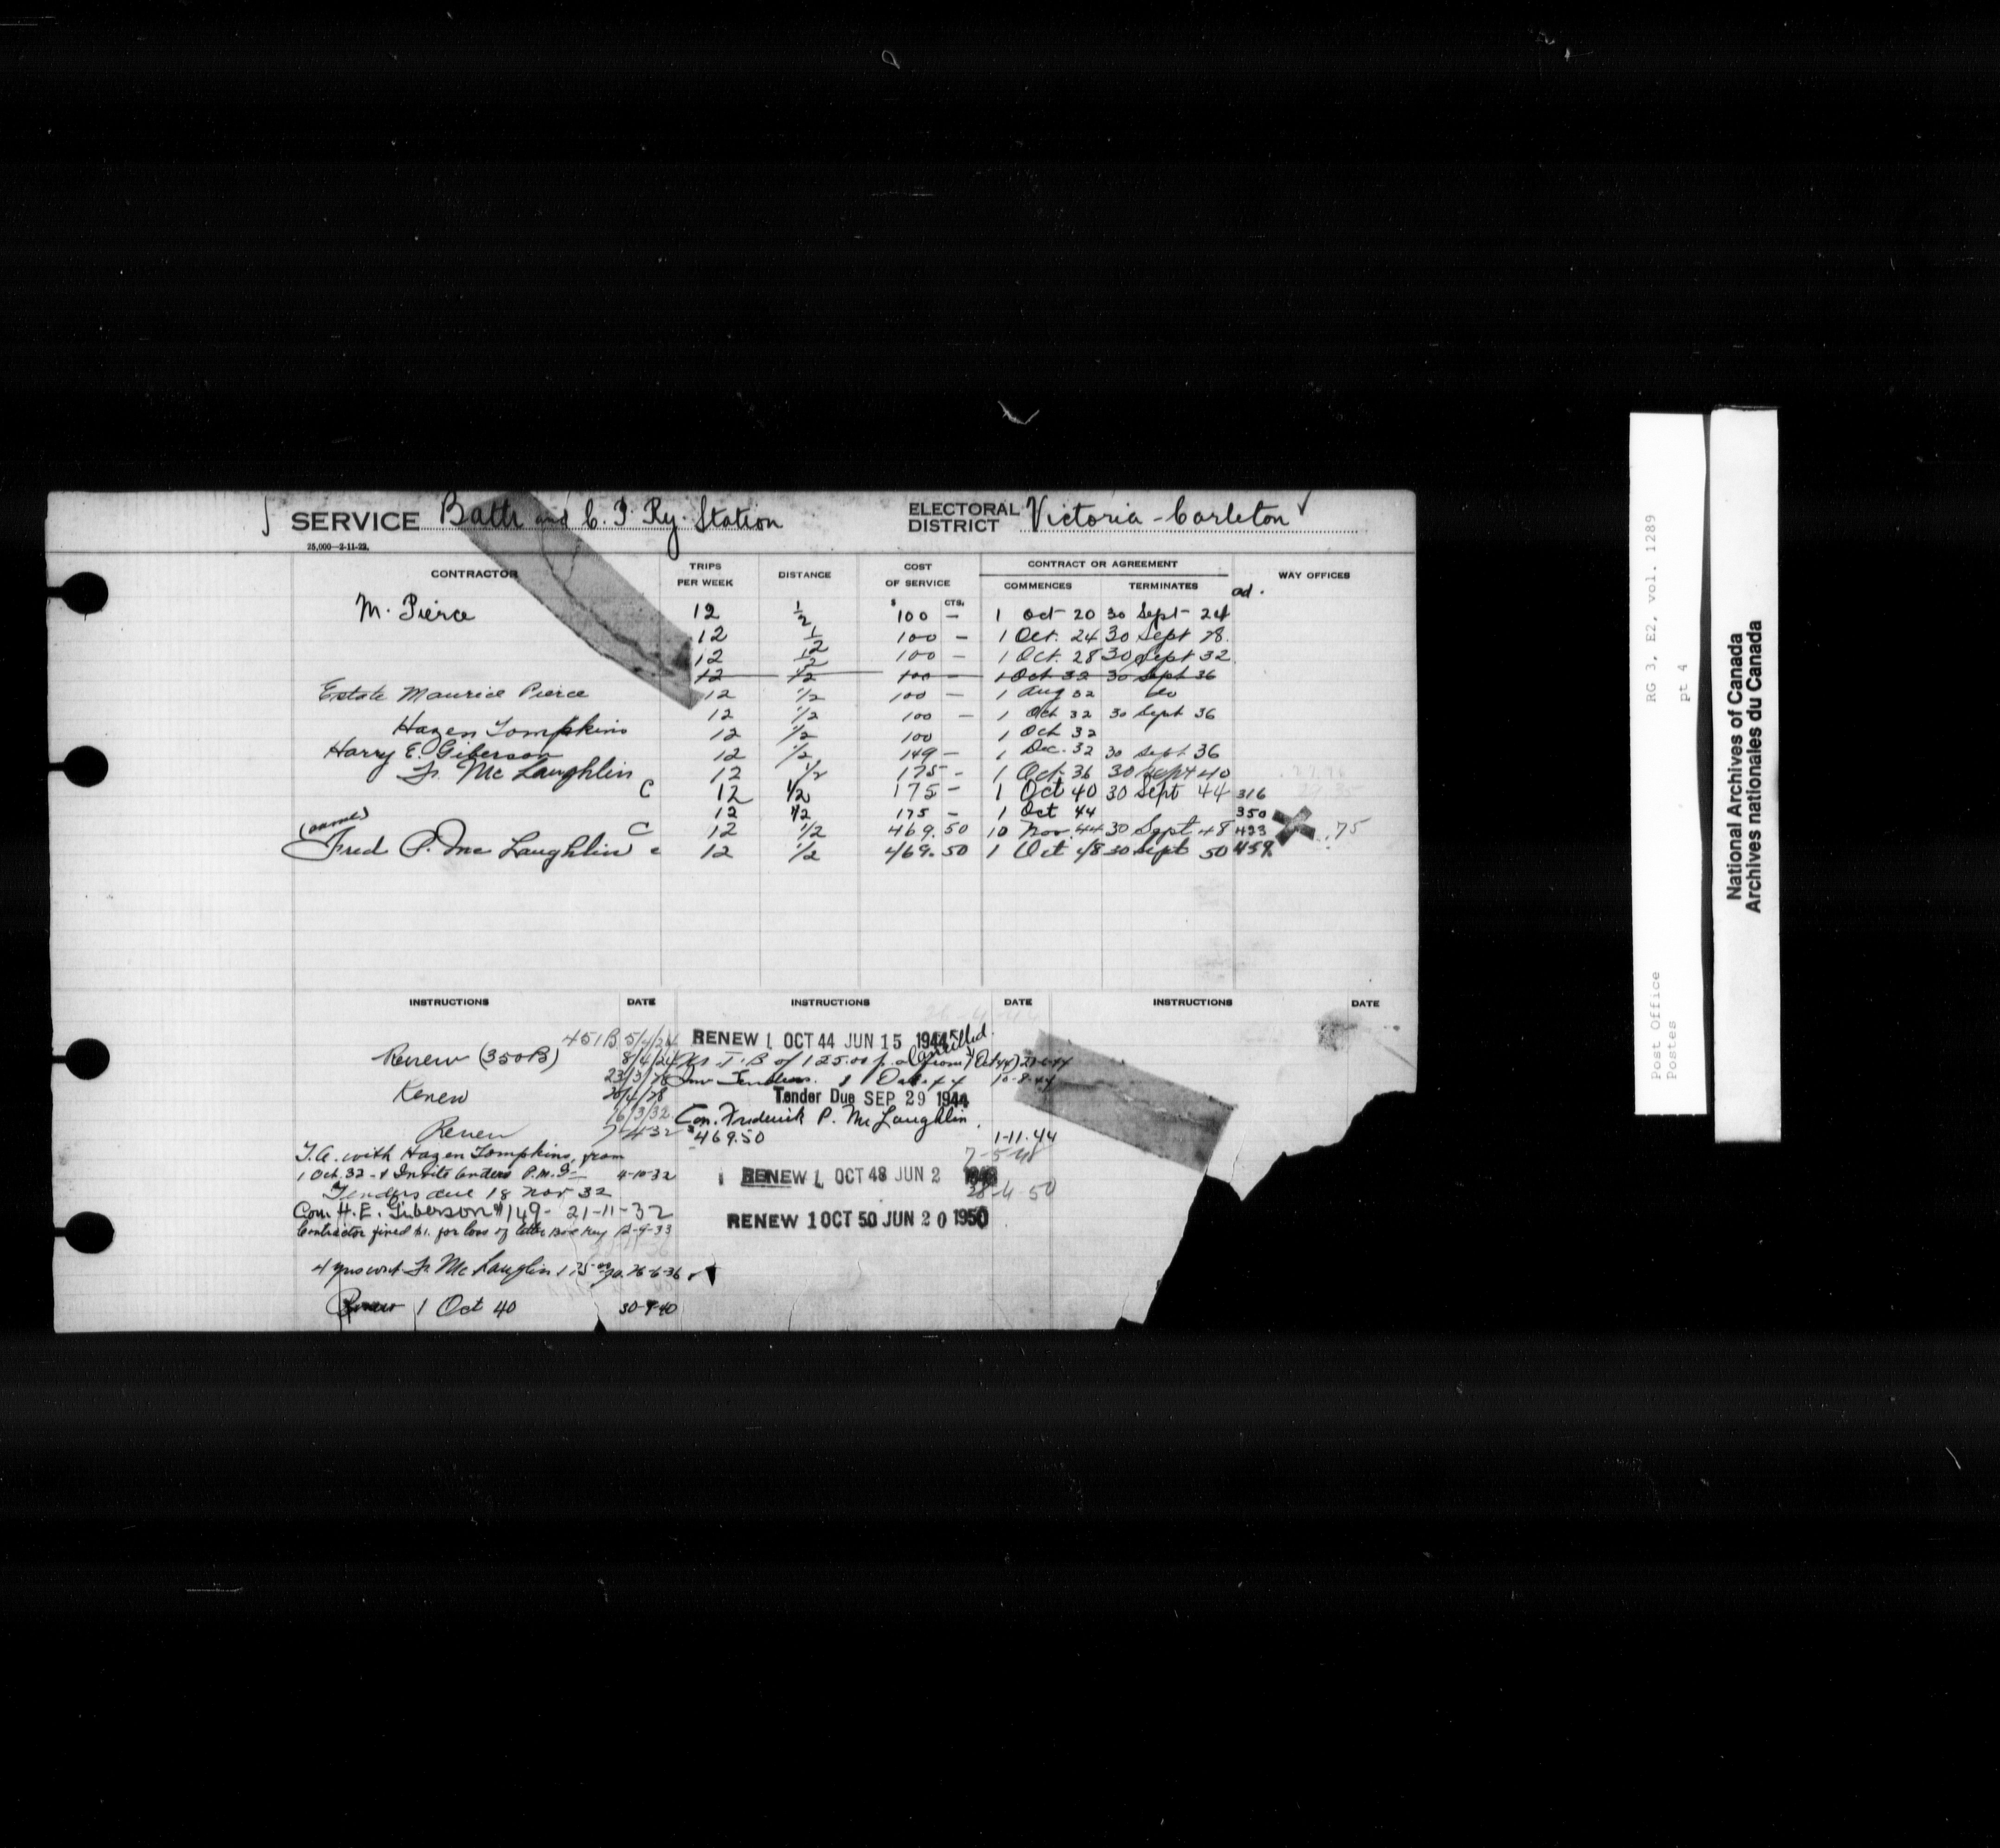 SERVICE Bath and C. P. Ry. Station ELECTORAL DISTRICT Victoria - Carleton
25,000—2-11-22.
CONTRACTOR TRIPS PER WEEK DISTANCE COST OF SERVICE CONTRACT OR AGREEMENT COMMENCES TERMINATES WAY OFFICES
$ CTS. ad.
M. Pierce 12 1/2 100 — 1 Oct 20 30 Sept 24
12 1/2 100 — 1 Oct. 24 30 Sept 28.
12 1/2 100 — 1 Oct. 28 30 Sept 32
12 1/2 100 — 1 Oct 32 30 Sept 36
Estate Maurice Pierce 12 1/2 100 — 1 Aug 32 do
12 1/2 100 — 1 Oct 32 30 Sept 36
Hazen Tompkins 12 1/2 100 1 Oct 32
Harry E. Giberson 12 1/2 149 — 1 Dec. 32 30 Sept 36
Fr. McLaughlin 12 1/2 175 - 1 Oct 36 30 Sept 40
C 12 1/2 175 - 1 Oct 40 30 Sept 44 316
12 1/2 175 - 1 Oct 44 350
(name) C 12 1/2 469.50 10 Nov. 44 30 Sept 48 433 .75
Fred P. McLaughlin c 12 1/2 469.50 1 Oct 48 30 Sept 50 459
INSTRUCTIONS DATE INSTRUCTIONS DATE INSTRUCTIONS DATE
451B 5/4/24
Renew (350B) 8/4/24
23/3/28
Renew 20/4/28
16/3/32
Renew 7-4-32
T.A. with Hazen Tompkins, from
1 Oct. 32 - & Invite tenders P.M.G— 4-10-32
Tenders due 18 Nov 32
Con. H. E. Giberson $149- 21-11-32
Contractor fined $1. for loss of letter Box Key 12-9-33
4 yrs cont Fr. McLaughlin 175.00 pa. 26-6-36
Renew 1 Oct 40 30-9-40
26-4-44
RENEW 1 OCT 44 JUN 15 1944 Cancelled.
of 125.00 p. a. from 1 Oct 44
Inv Tenders. 1 Oct 44 10-8-44
Tender Due SEP 29 1944
Con. Frederick P. McLaughlin,
$469.50 1-11-44
7-5-48
RENEW 1 OCT 48 JUN 2 1948
28-4-50
RENEW 1 OCT 50 JUN 20 1950
RG 3, E2, vol. 1289
pt 4
Post Office
Postes
National Archives of Canada
Archives nationales du Canada